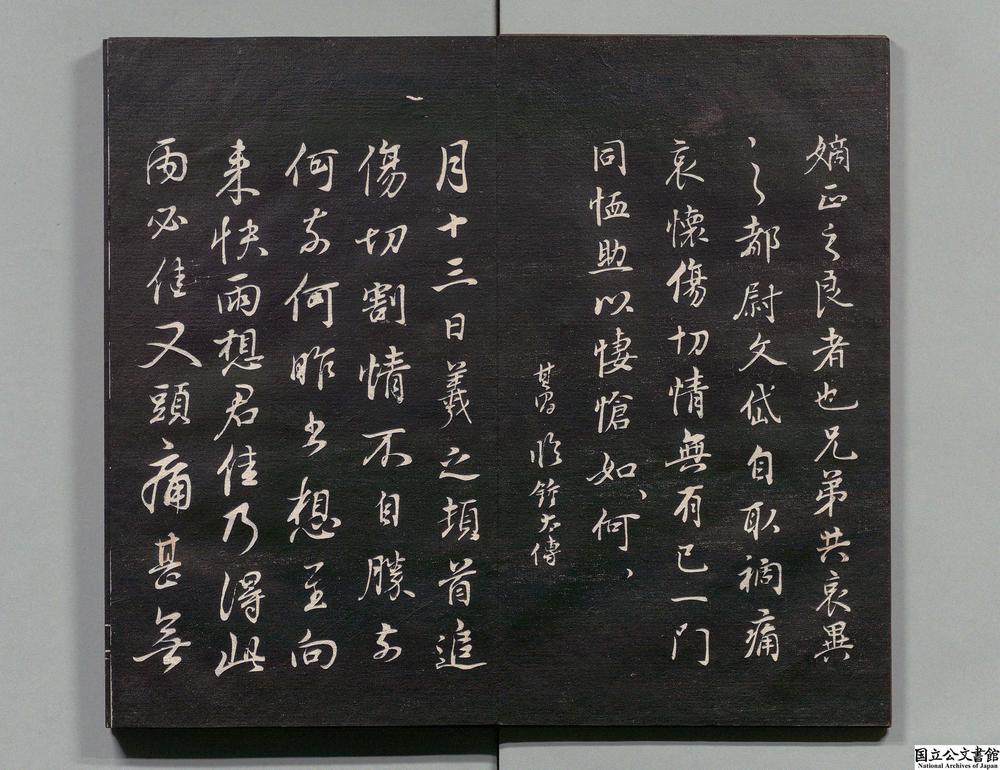 嫡正之良者也兄弟共哀異
、之都尉文岱自取禍痛
哀懷傷切情無有已一門
同恤助以悽愴如、何、
其昌臨鍾太傅
月十三日羲之頓首追
傷切割情不自勝奈
何奈何昨書想至向
來快雨想君佳乃得此
雨必佳又頭痛甚無
国立公文書館
National Archives of Japan